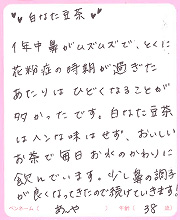 白なた豆茶
1年中鼻がムズムズで、とくに
花粉症の時期が過ぎた
あたりはひどくなることが
多かったです。白なた豆茶
はへンな味はせず、おいしい
お茶で毎日お水のかわりに
飲んでいます。少し鼻の調子
が良くなってきたので続けていきます!
ペンネーム( あや ) 年齢( 38 歳)